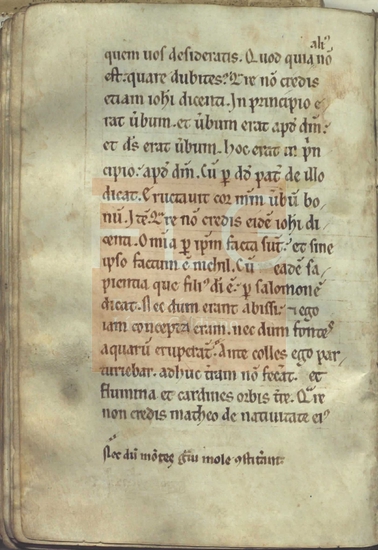 ali⁹
quem uos desideratis. Quod quia nō
est. quare dubites? Q̄re nō credis
etiam iohi dicenti. In principio e
rat ūbum. et ūbum erat apd dm̄.
et ds̄ erat ūbum. hoc erat in p̄n
cipio. apd dm̄. Cū p dd̄ pat̄ de illo
dicat. Eructauit cor mm̄ ūbū bo
nū. Itē. Q̄re nō credis eidē iohi di
centi. Omīa p ip̄m facta sūt. et sine
ipso factum ē nichil. Cū eadē sa
pientia que fili⁹ di ē. p salomonē
dicat. Nec dum erant abissi. ⁊ ego
iam concepta eram. nec dum fontes
aquarū eruperāt. Ante colles ego par
turiebar. adhuc t̄ram nō fecāt. et
flumina et cardines orbis t̄re. Q̄re
non credis matheo de natiuitate ei⁹
Nec dū mōtes g̃ui mole ɔstitāant.